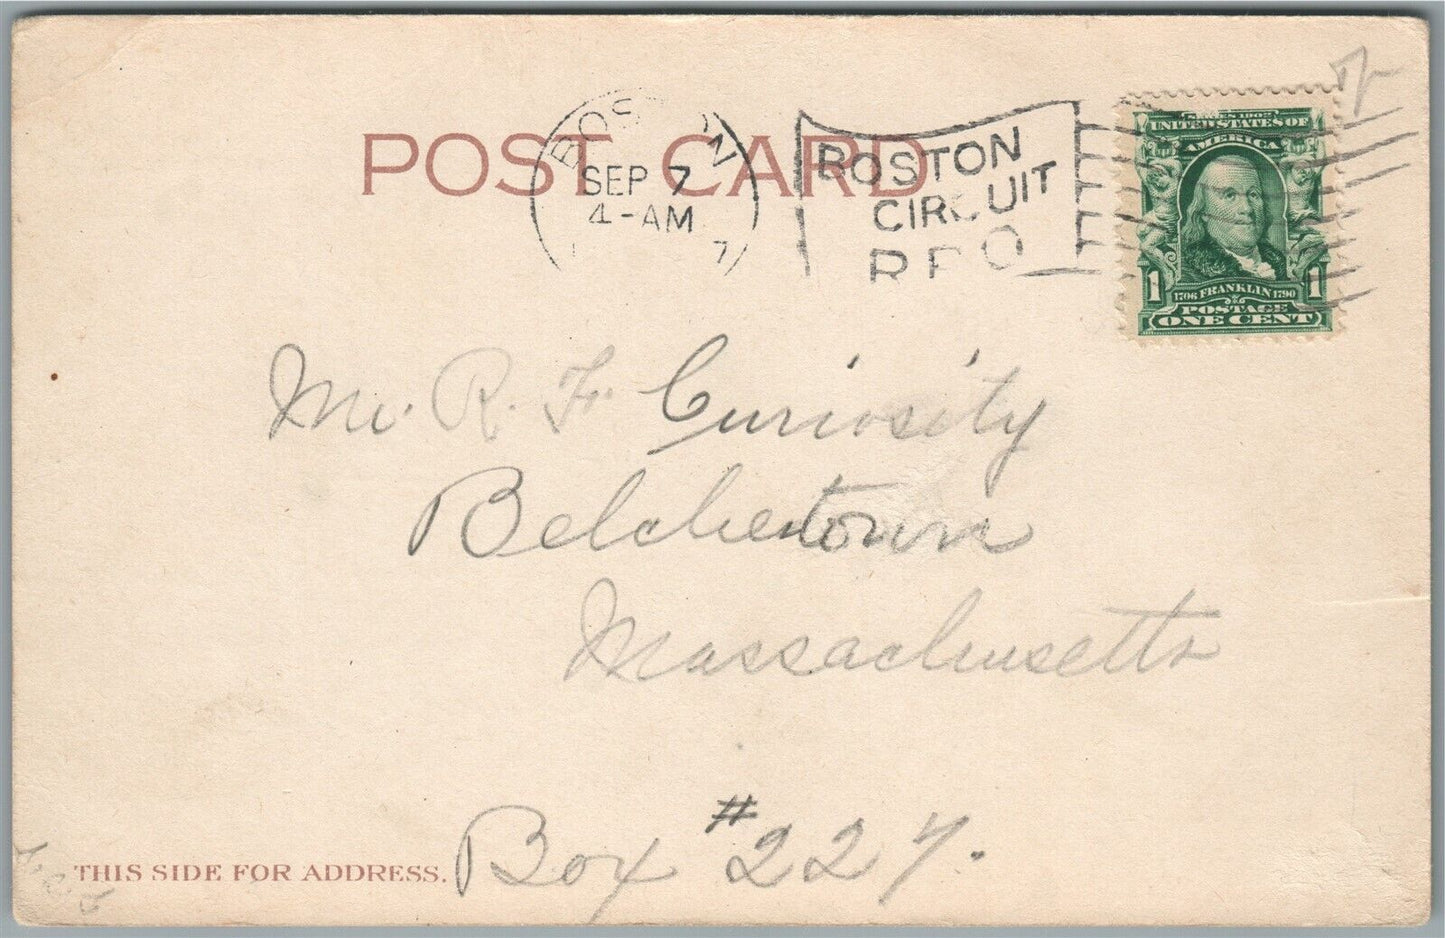 POST CARD
BOSTON
SEP 7
4-AM
7
BOSTON
CIRCUIT
RPO
UNITED STATES OF
AMERICA
1 1
1706 FRANKLIN 1790
POSTAGE
ONE CENT
Mr. R. F. Curiosity
Belchertown
Massachusetts
Box #227.
THIS SIDE FOR ADDRESS.